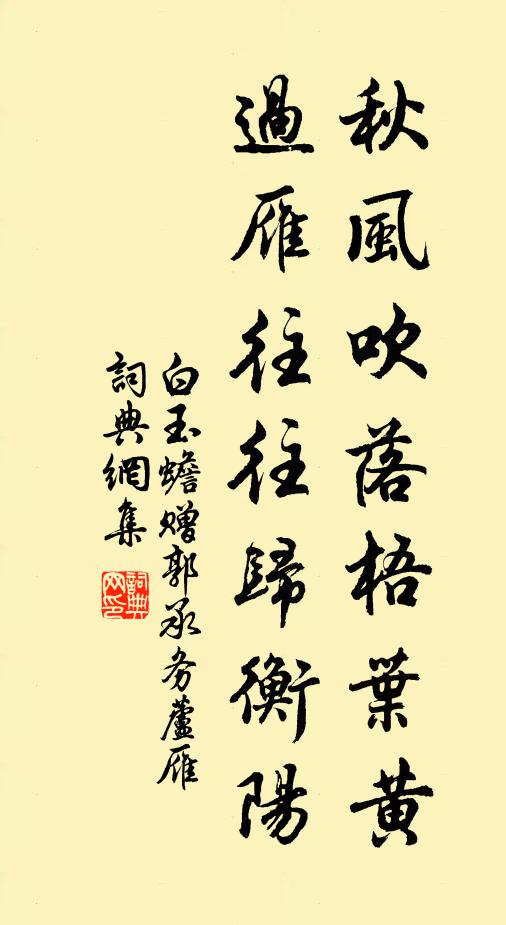 秋風吹落梧葉黃
過雁往往歸衡陽
白玉蟾贈郭承务蘆雁
詞典網集
詞典網印